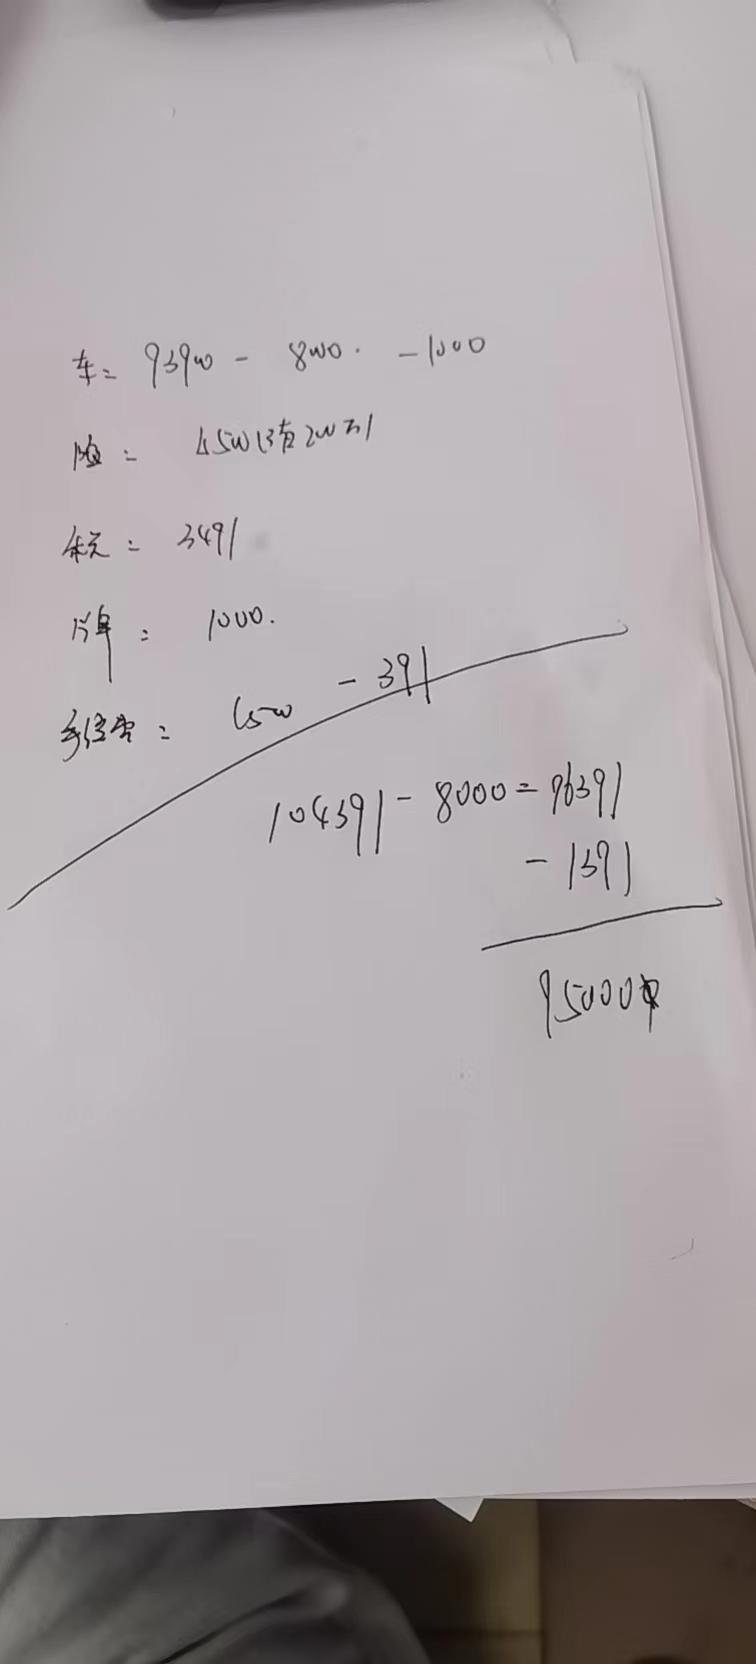 车= 93900 - 8000. -1000
险= 4500(3者200万)
税= 3491
牌= 1000.
手续费= 1500 -391
104391-8000=96391
-1391
95000